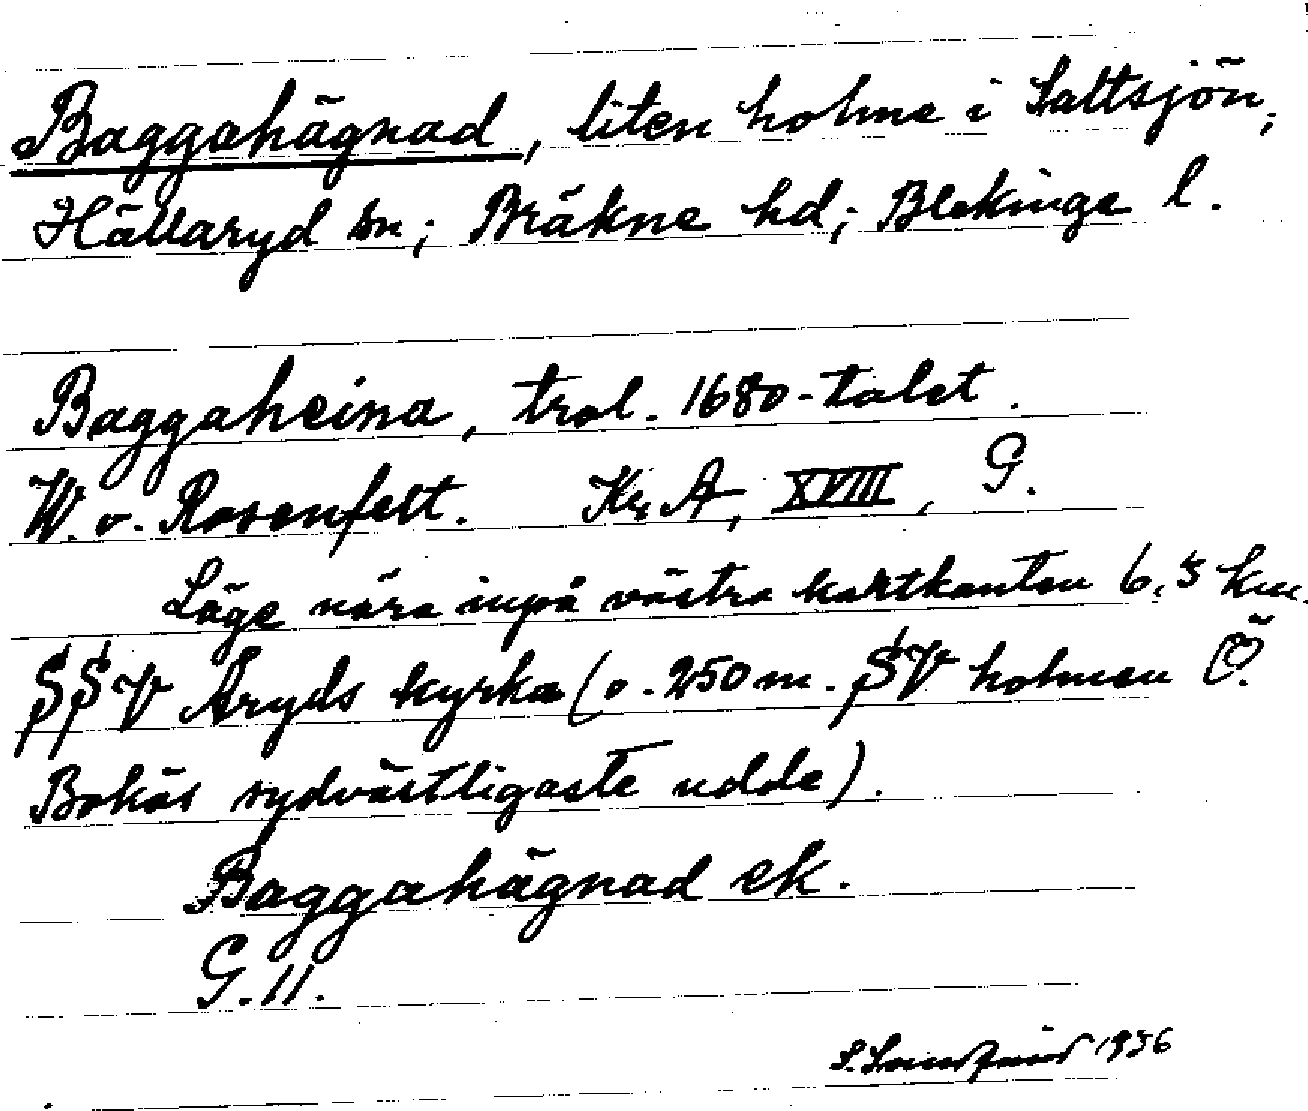 Baggahägnad, liten holme i Saltsjön,
Hällaryd sn; Bräkne hd; Blekinge l.
Baggaheina, trol. 1680-talet.
W. v. Rosenfelt. Kr. A, XVIII, G.
Läge nära inpå västra kartkanten 6,5 km.
SSV Åryds kyrka (c. 250 m. SV holmen Ö.
Bokös sydvästligaste udde).
Baggahägnad ek.
G. 11.
S. 1936